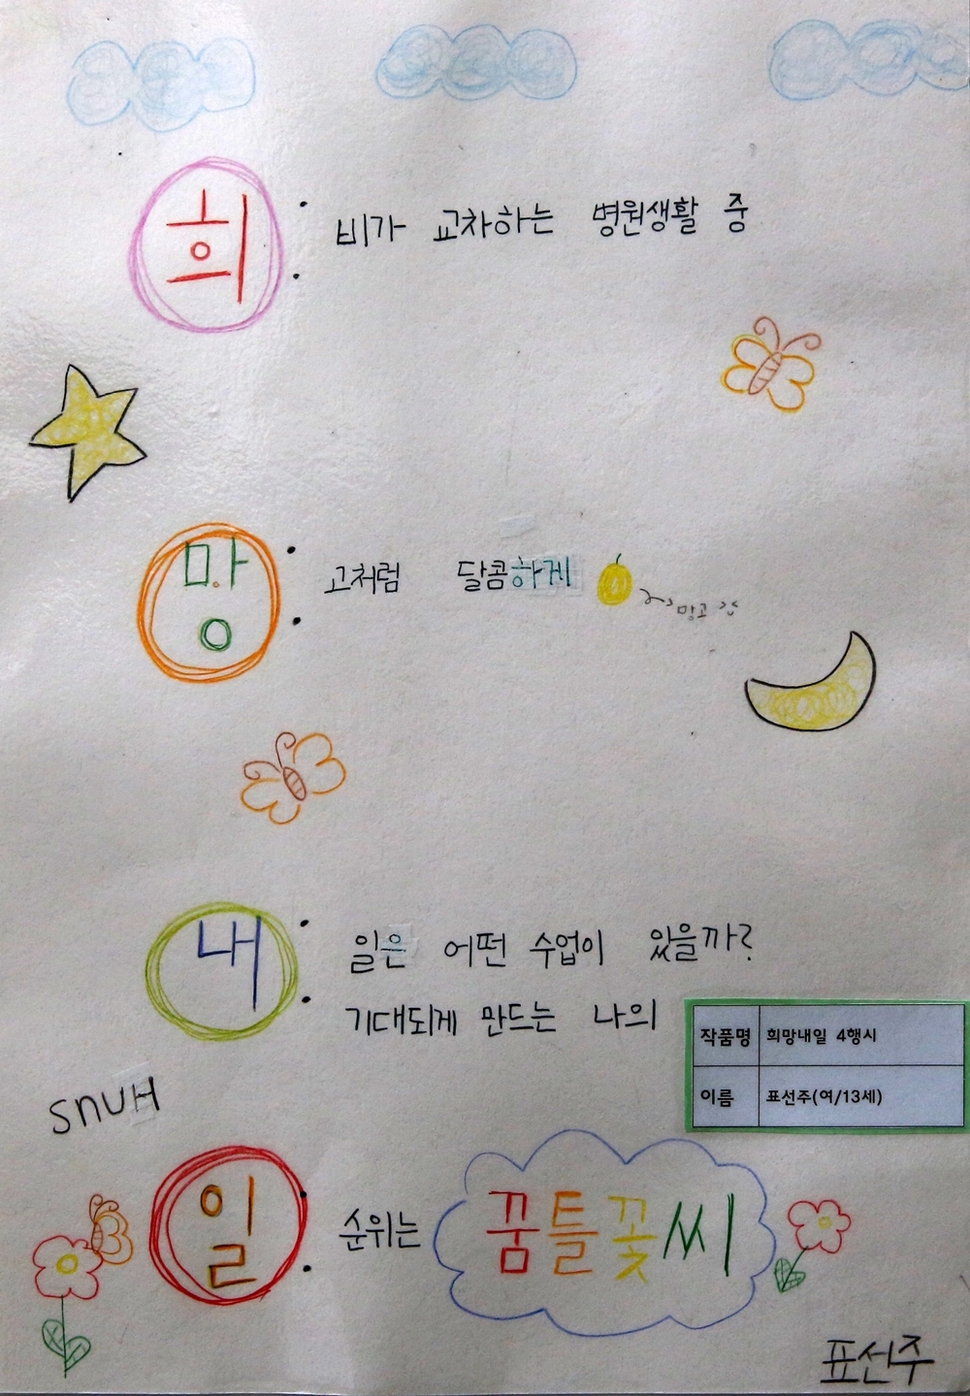 희 : 비가 교차하는 병원생활 중
망 : 고처럼 달콤하게
망고
내 : 일은 어떤 수업이 있을까?
기대되게 만드는 나의
작품명 희망내일 4행시
이름 표선주(여/13세)
SNUH
일 : 순위는 꿈틀꽃씨
표선주